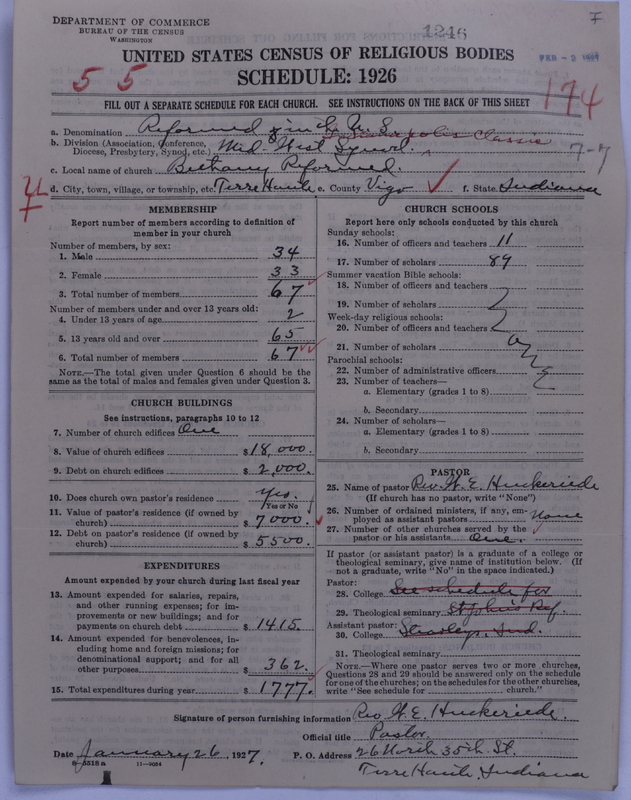 DEPARTMENT OF COMMERCE
BUREAU OF THE CENSUS
WASHINGTON
1246
UNITED STATES CENSUS OF RELIGIOUS BODIES
SCHEDULE: 1926
5 5
174
FILL OUT A SEPARATE SCHEDULE FOR EACH CHURCH. SEE INSTRUCTIONS ON THE BACK OF THIS SHEET
a. Denomination Reformed in the U. S.
b. Division (Association, Conference, Diocese, Presbytery, Synod, etc.) Mid. West Synod. Classis 7-7
c. Local name of church Bethany Reformed.
d. City, town, village, or township, etc. Terre Haute e. County Vigo f. State Indiana
MEMBERSHIP
Report number of members according to definition of
member in your church
Number of members, by sex:
1. Male 34
2. Female 33
3. Total number of members 67
Number of members under and over 13 years old:
4. Under 13 years of age 2
5. 13 years old and over 65
6. Total number of members 67
NOTE.—The total given under Question 6 should be the
same as the total of males and females given under Question 3.
CHURCH BUILDINGS
See instructions, paragraphs 10 to 12
7. Number of church edifices One
8. Value of church edifices $18,000.
9. Debt on church edifices $2,000.
10. Does church own pastor's residence Yes.
Yes or No
11. Value of pastor's residence (if owned by
church) $7000.
12. Debt on pastor's residence (if owned by
church) $5500.
EXPENDITURES
Amount expended by your church during last fiscal year
13. Amount expended for salaries, repairs,
and other running expenses; for im-
provements or new buildings; and for
payments on church debt $1415.
14. Amount expended for benevolences, in-
cluding home and foreign missions; for
denominational support; and for all
other purposes $362.
15. Total expenditures during year $1777.
CHURCH SCHOOLS
Report here only schools conducted by this church
Sunday schools:
16. Number of officers and teachers 11
17. Number of scholars 89
Summer vacation Bible schools:
18. Number of officers and teachers
19. Number of scholars
Week-day religious schools:
20. Number of officers and teachers
21. Number of scholars
Parochial schools:
22. Number of administrative officers
23. Number of teachers—
a. Elementary (grades 1 to 8)
b. Secondary
24. Number of scholars—
a. Elementary (grades 1 to 8)
b. Secondary
PASTOR
25. Name of pastor Rev. W. E. Huckeriede
(If church has no pastor, write "None")
26. Number of ordained ministers, if any, em-
ployed as assistant pastors None
27. Number of other churches served by the
pastor or his assistants One.
If pastor (or assistant pastor) is a graduate of a college or
theological seminary, give name of institution below. (If
not a graduate, write "No" in the space indicated.)
Pastor:
28. College See schedule for
29. Theological seminary St John's Ref.
Assistant pastor:
30. College Ind.
31. Theological seminary
NOTE.—Where one pastor serves two or more churches,
Questions 28 and 29 should be answered only on the schedule
for one of the churches; on the schedules for the other churches,
write "See schedule for church."
Signature of person furnishing information Rev W. E. Huckeriede.
Official title Pastor.
Date January 26, 1927. P. O. Address 26 North 35th St.
8-5518a 11-9684
Terre Haute, Indiana